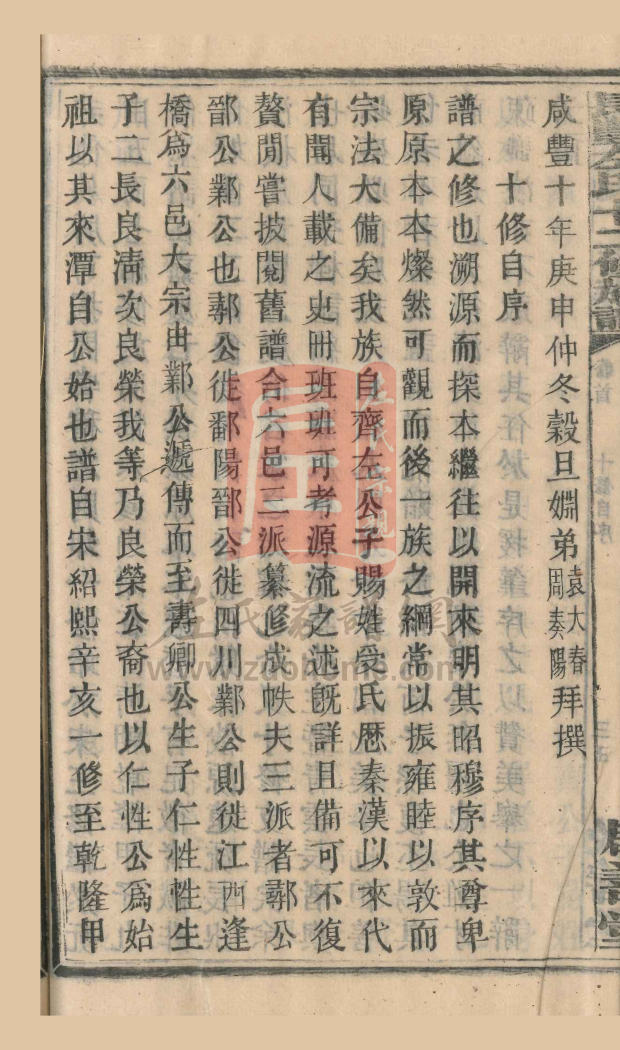 咸豐十年庚申仲冬穀旦姻弟袁大春周奏陽拜撰
十修自序
譜之修也溯源而探本繼往以開來明其昭穆序其尊卑
原原本本燦然可觀而後一族之綱常以振雍睦以敦而
宗法大備矣我族自齊左公子賜姓受氏厯秦漢以來代
有聞人載之史冊班班可考源流之述旣詳且備可不復
贅閒嘗披閱舊譜合六邑三派纂修成帙夫三派者鄣公
鄑公鄴公也鄣公徙鄱陽鄑公徙四川鄴公則徙江西逢
橋爲六邑大宗由鄴公遞傳而至壽卿公生子仁性性生
子二長良淸次良榮我等乃良榮公裔也以仁性公爲始
祖以其來潭自公始也譜自宋紹熙辛亥一修至乾隆甲
卷首
十修自序
左氏族譜網
www.zuohome.com